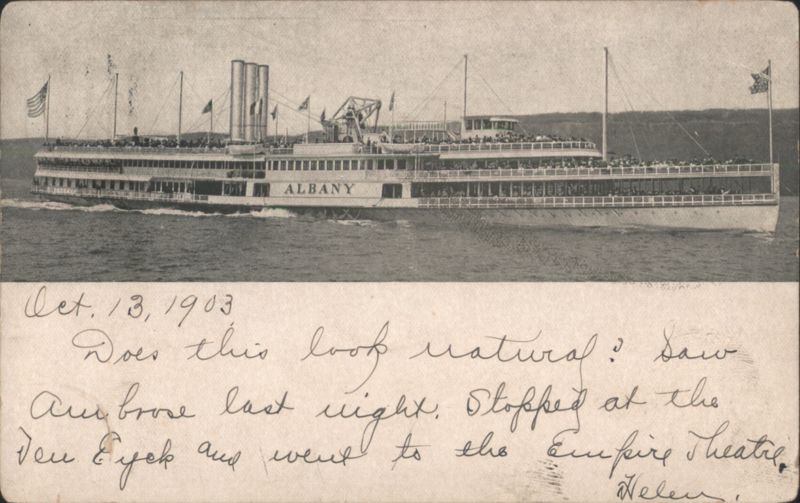 ALBANY
Oct. 13, 1903
Does this look natural? Saw
Ambrose last night. Stopped at the
Ten Eyck and went to the Empire Theatre.
Helen.